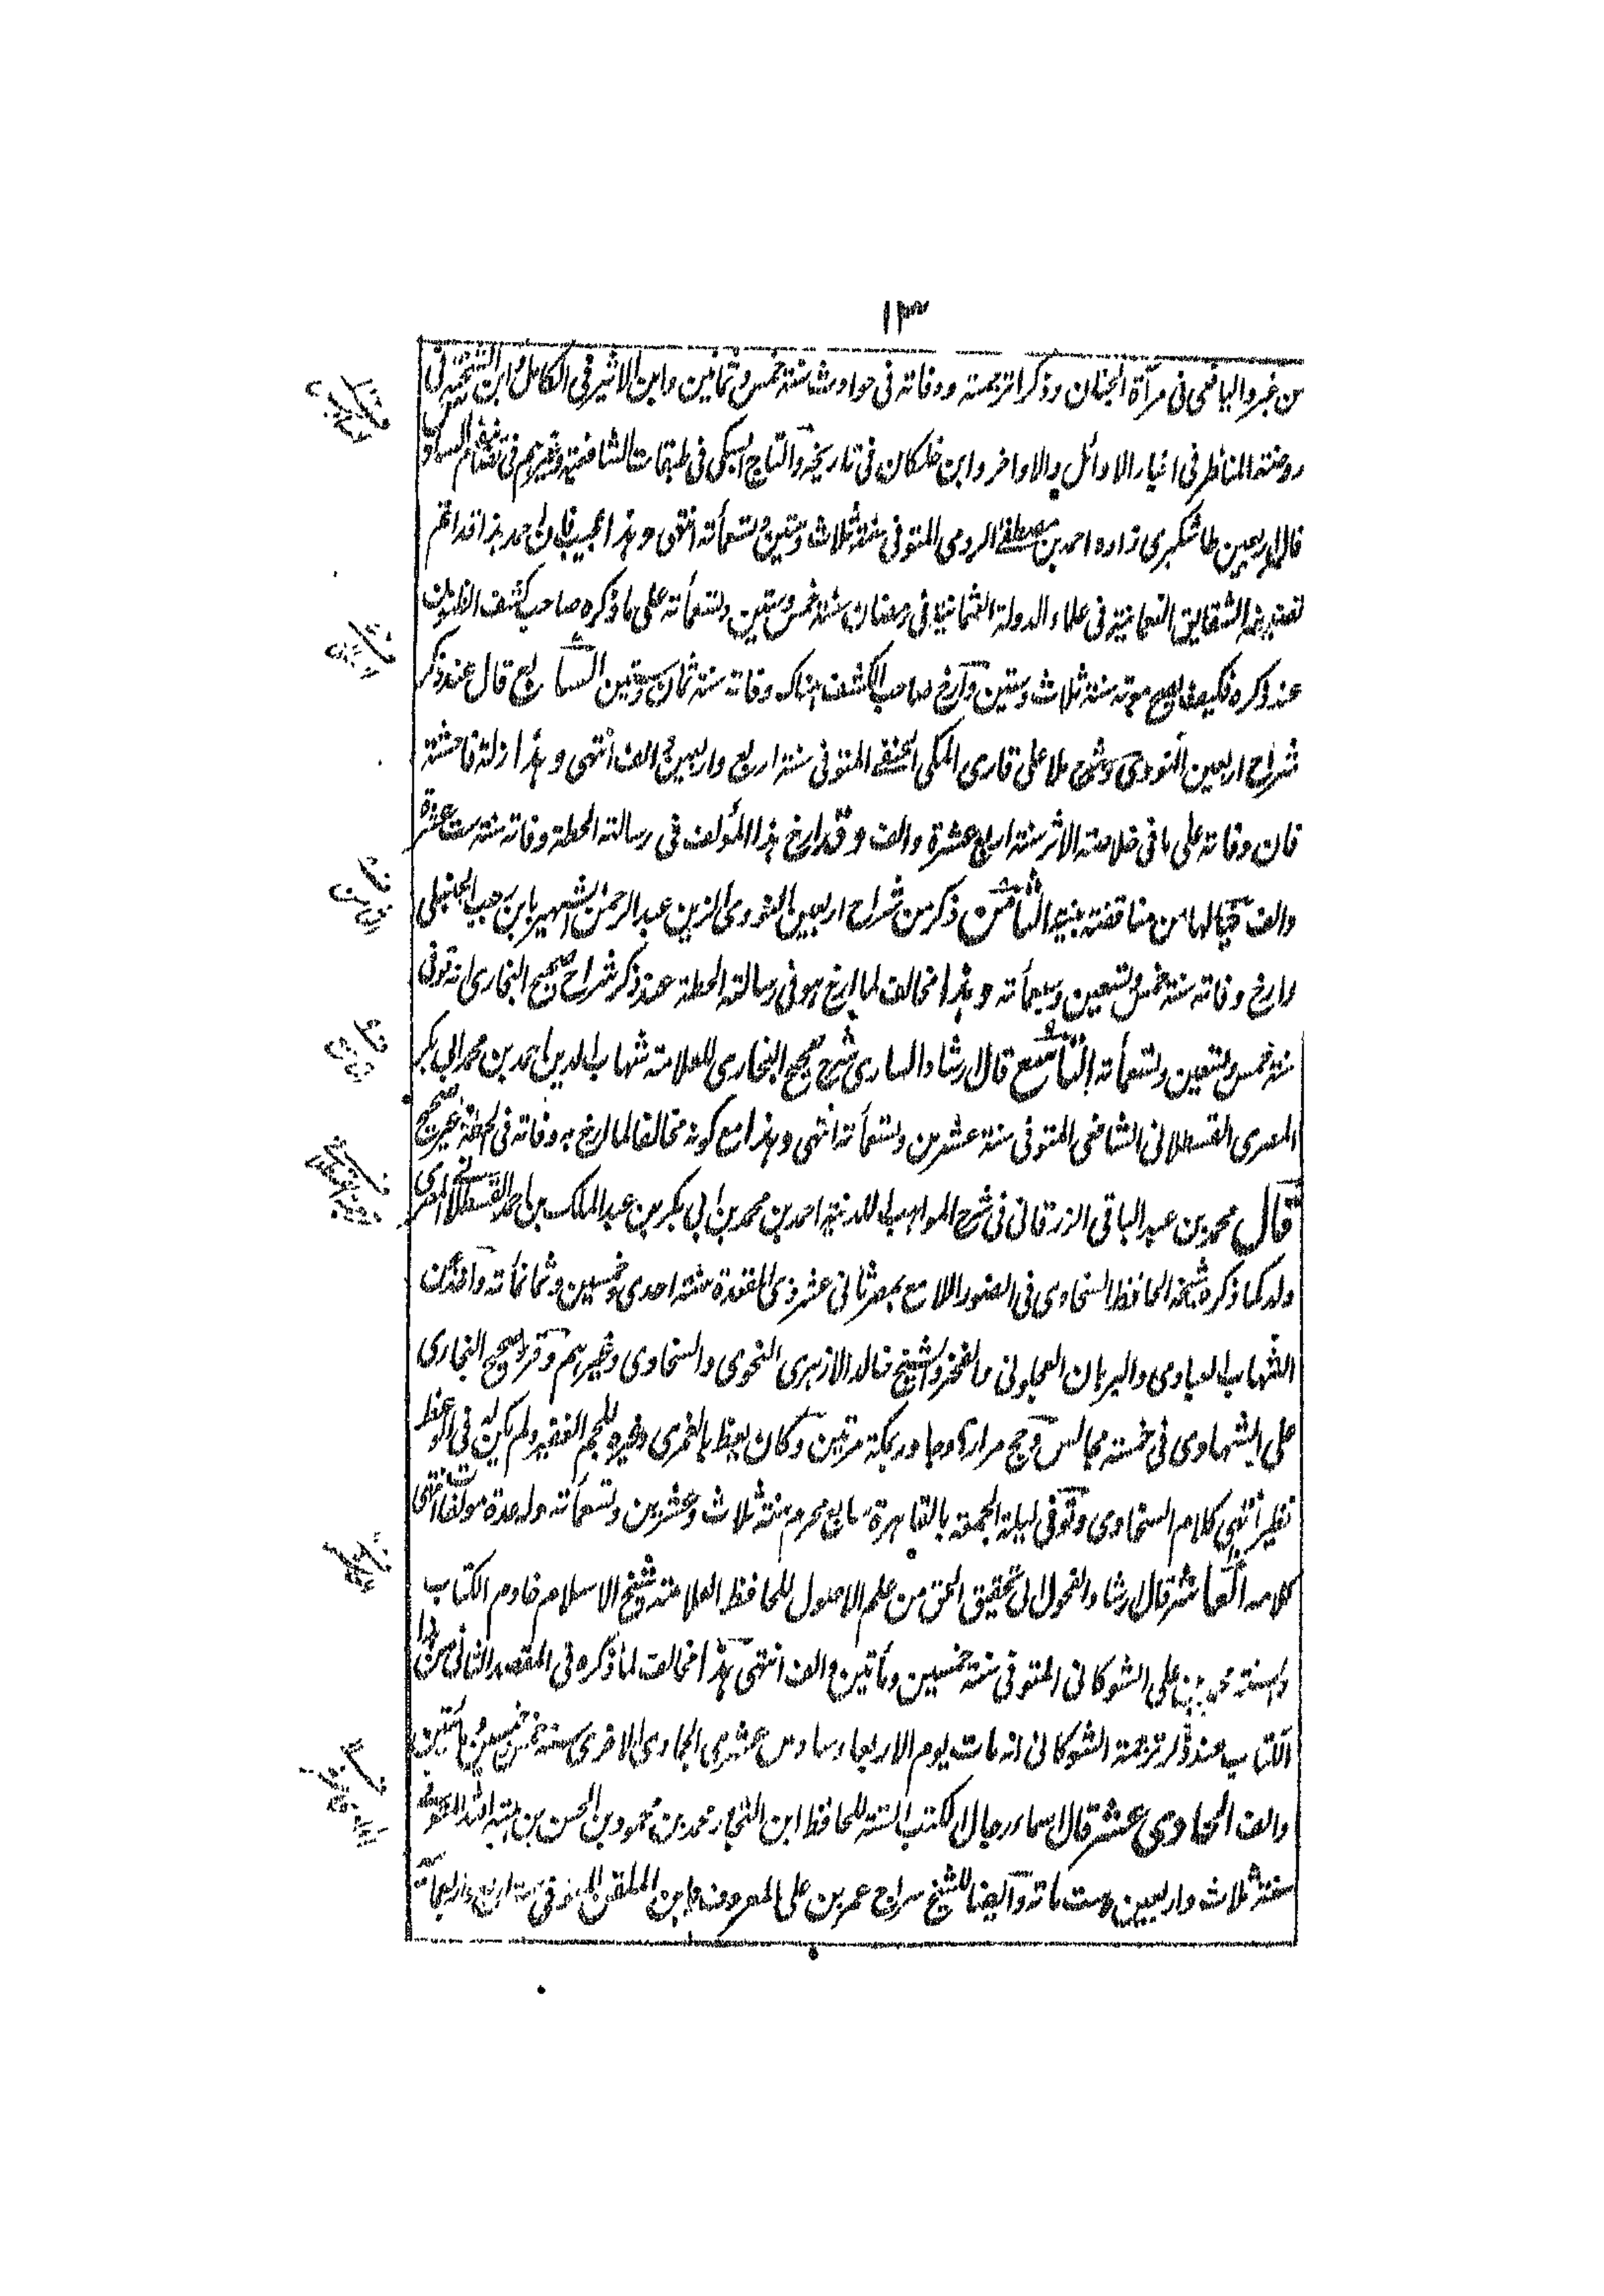 ١٣
من غبر واليافعى فى مرآة الجنان وذكرا ترجمته ووفاته فى حوادث سنة خمس وثمانين وابن الاثير فى الكامل وابن الشحنة فى
روضة المناظر فى اخبار الاوائل والاواخر وابن خلكان فى تاريخه والتاج السبكى فى طبقات الشافعية وغيرهم فى
قال اربعين طاشكبرى زاده احمد بن مصطفى الرومى المتوفى سنة ثلاث وستين وتسعمائة انتهى وهذا عجيب فان احمد هذا قد اتم
تصنيفه الشقايق النعمانية فى علماء الدولة العثمانية فى رمضان سنة خمس وستين وتسعمائة على ما ذكره صاحب كشف الظنون
عند ذكره فكيف يصح موته سنة ثلاث وستين وآرخ صاحب الكشف هناك وفاته سنة ثمان وستين السابع قال عند ذكر
شراح اربعين النووى وشرح ملا على قارى المكى الحنفى المتوفى سنة اربع واربعين والف انتهى وهذا زلة فاحشة
فان وفاته على ما فى خلاصة الاثر سنة اربع عشرة والف وقد ارخ هذا المؤلف فى رسالته الحطة وفاته سنة ست عشرة
والف فيالها من مناقضة بينة الثامن ذكر من شراح اربعين النووى الزين عبد الرحمن الشهير بابن رجب الحنبلى
وارخ وفاته سنة خمس وتسعين وسبعمائة وهذا مخالف لما ارخ هو فى رسالته الحطة عند ذكر شراح صحيح البخارى انه توفى
سنة خمس وتسعين وتسعمائة التاسع قال ارشاد السارى شرح صحيح البخارى للعلامة شهاب الدين احمد بن محمد ابى بكر
المصرى القسطلانى الشافعى المتوفى سنة عشرين وتسعمائة انتهى وهذا مع كونه مخالفا لما ارخ به وفاته فى الحطة غير صحيح
قال محمد بن عبد الباقى الزرقانى فى شرح المواهب اللدنية احمد بن محمد بن ابى بكر بن عبد الملك بن احمد القسطلانى المصرى
ولد كما ذكره شيخه الحافظ السخاوى فى الضوء اللامع بمصر ثانى عشر ذى القعدة سنة احدى وخمسين وثمانمائة واخذ عن
الشهاب العبادى والبرهان العجلونى والفخر والشيخ خالد الازهرى النحوى والسخاوى وغيرهم وقرء صحيح البخارى
على الشهاوى فى خمسة مجالس وحج مرارا وجاور بمكة مرتين وكان يعظ بالغمرى وغيره للجم الغفير ولم يكن له فى الوعظ
نظير انتهى كلام السخاوى وتوفى ليلة الجمعة بالقاهرة سابع محرم سنة ثلاث وعشرين وتسعمائة وله عدة مؤلفات انتهى
كلامه العاشر قال ارشاد الفحول الى تحقيق الحق من علم الاصول للحافظ العلامة شيخ الاسلام خادم الكتاب
والسنة محمد بن على الشوكانى المتوفى سنة خمسين ومأتين والف انتهى هذا مخالف لما ذكره فى المقصد الثانى من هذا
الكتاب عند ذكر ترجمة الشوكانى انه مات يوم الاربعاء سادس عشرى الجمادى الاخرى سنة خمس خمسين ومأتين
والف الحادى عشر قال اسماء رجال الكتب الستة للحافظ ابن النجار محمد بن محمود بن الحسن بن هبة الله المتوفى
سنة ثلاث واربعين وست مائة وايضا للشيخ سراج عمر بن على المعروف بابن الملقن المتوفى سنة اربع واربعمائة